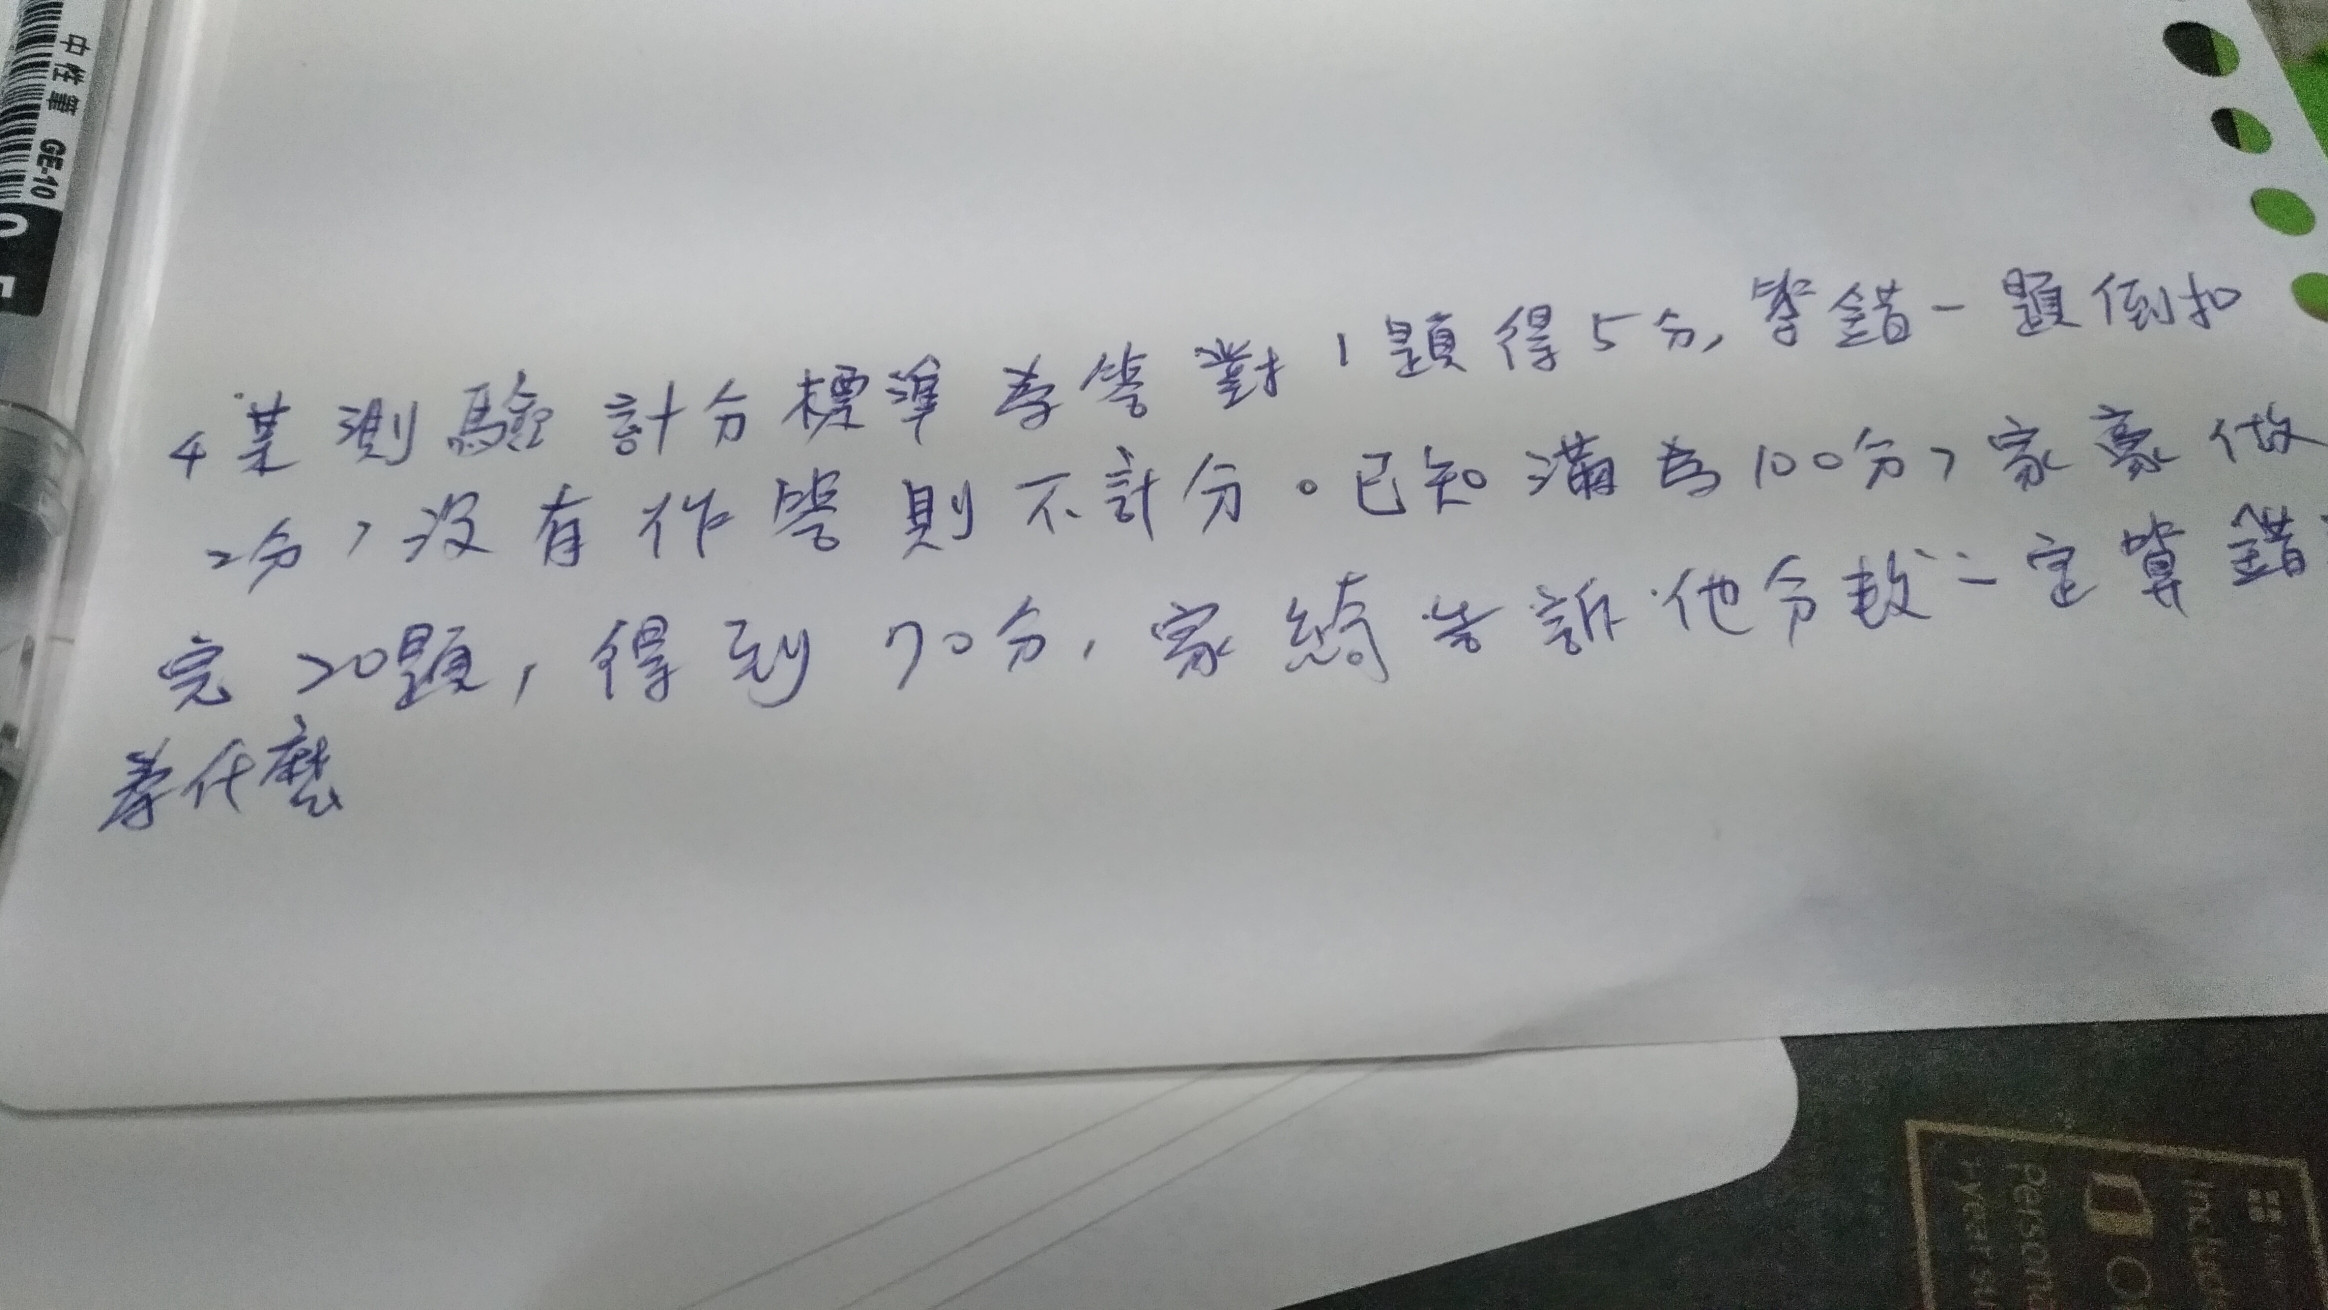 中性筆 GE-10
4 某測驗計分標準為答對1題得5分,答錯一題倒扣
2分,沒有作答則不計分。已知滿為100分,家豪做
完20題,得到70分,家綺告訴他分數一定算錯
為什麼
Includ
Persona
1 year su